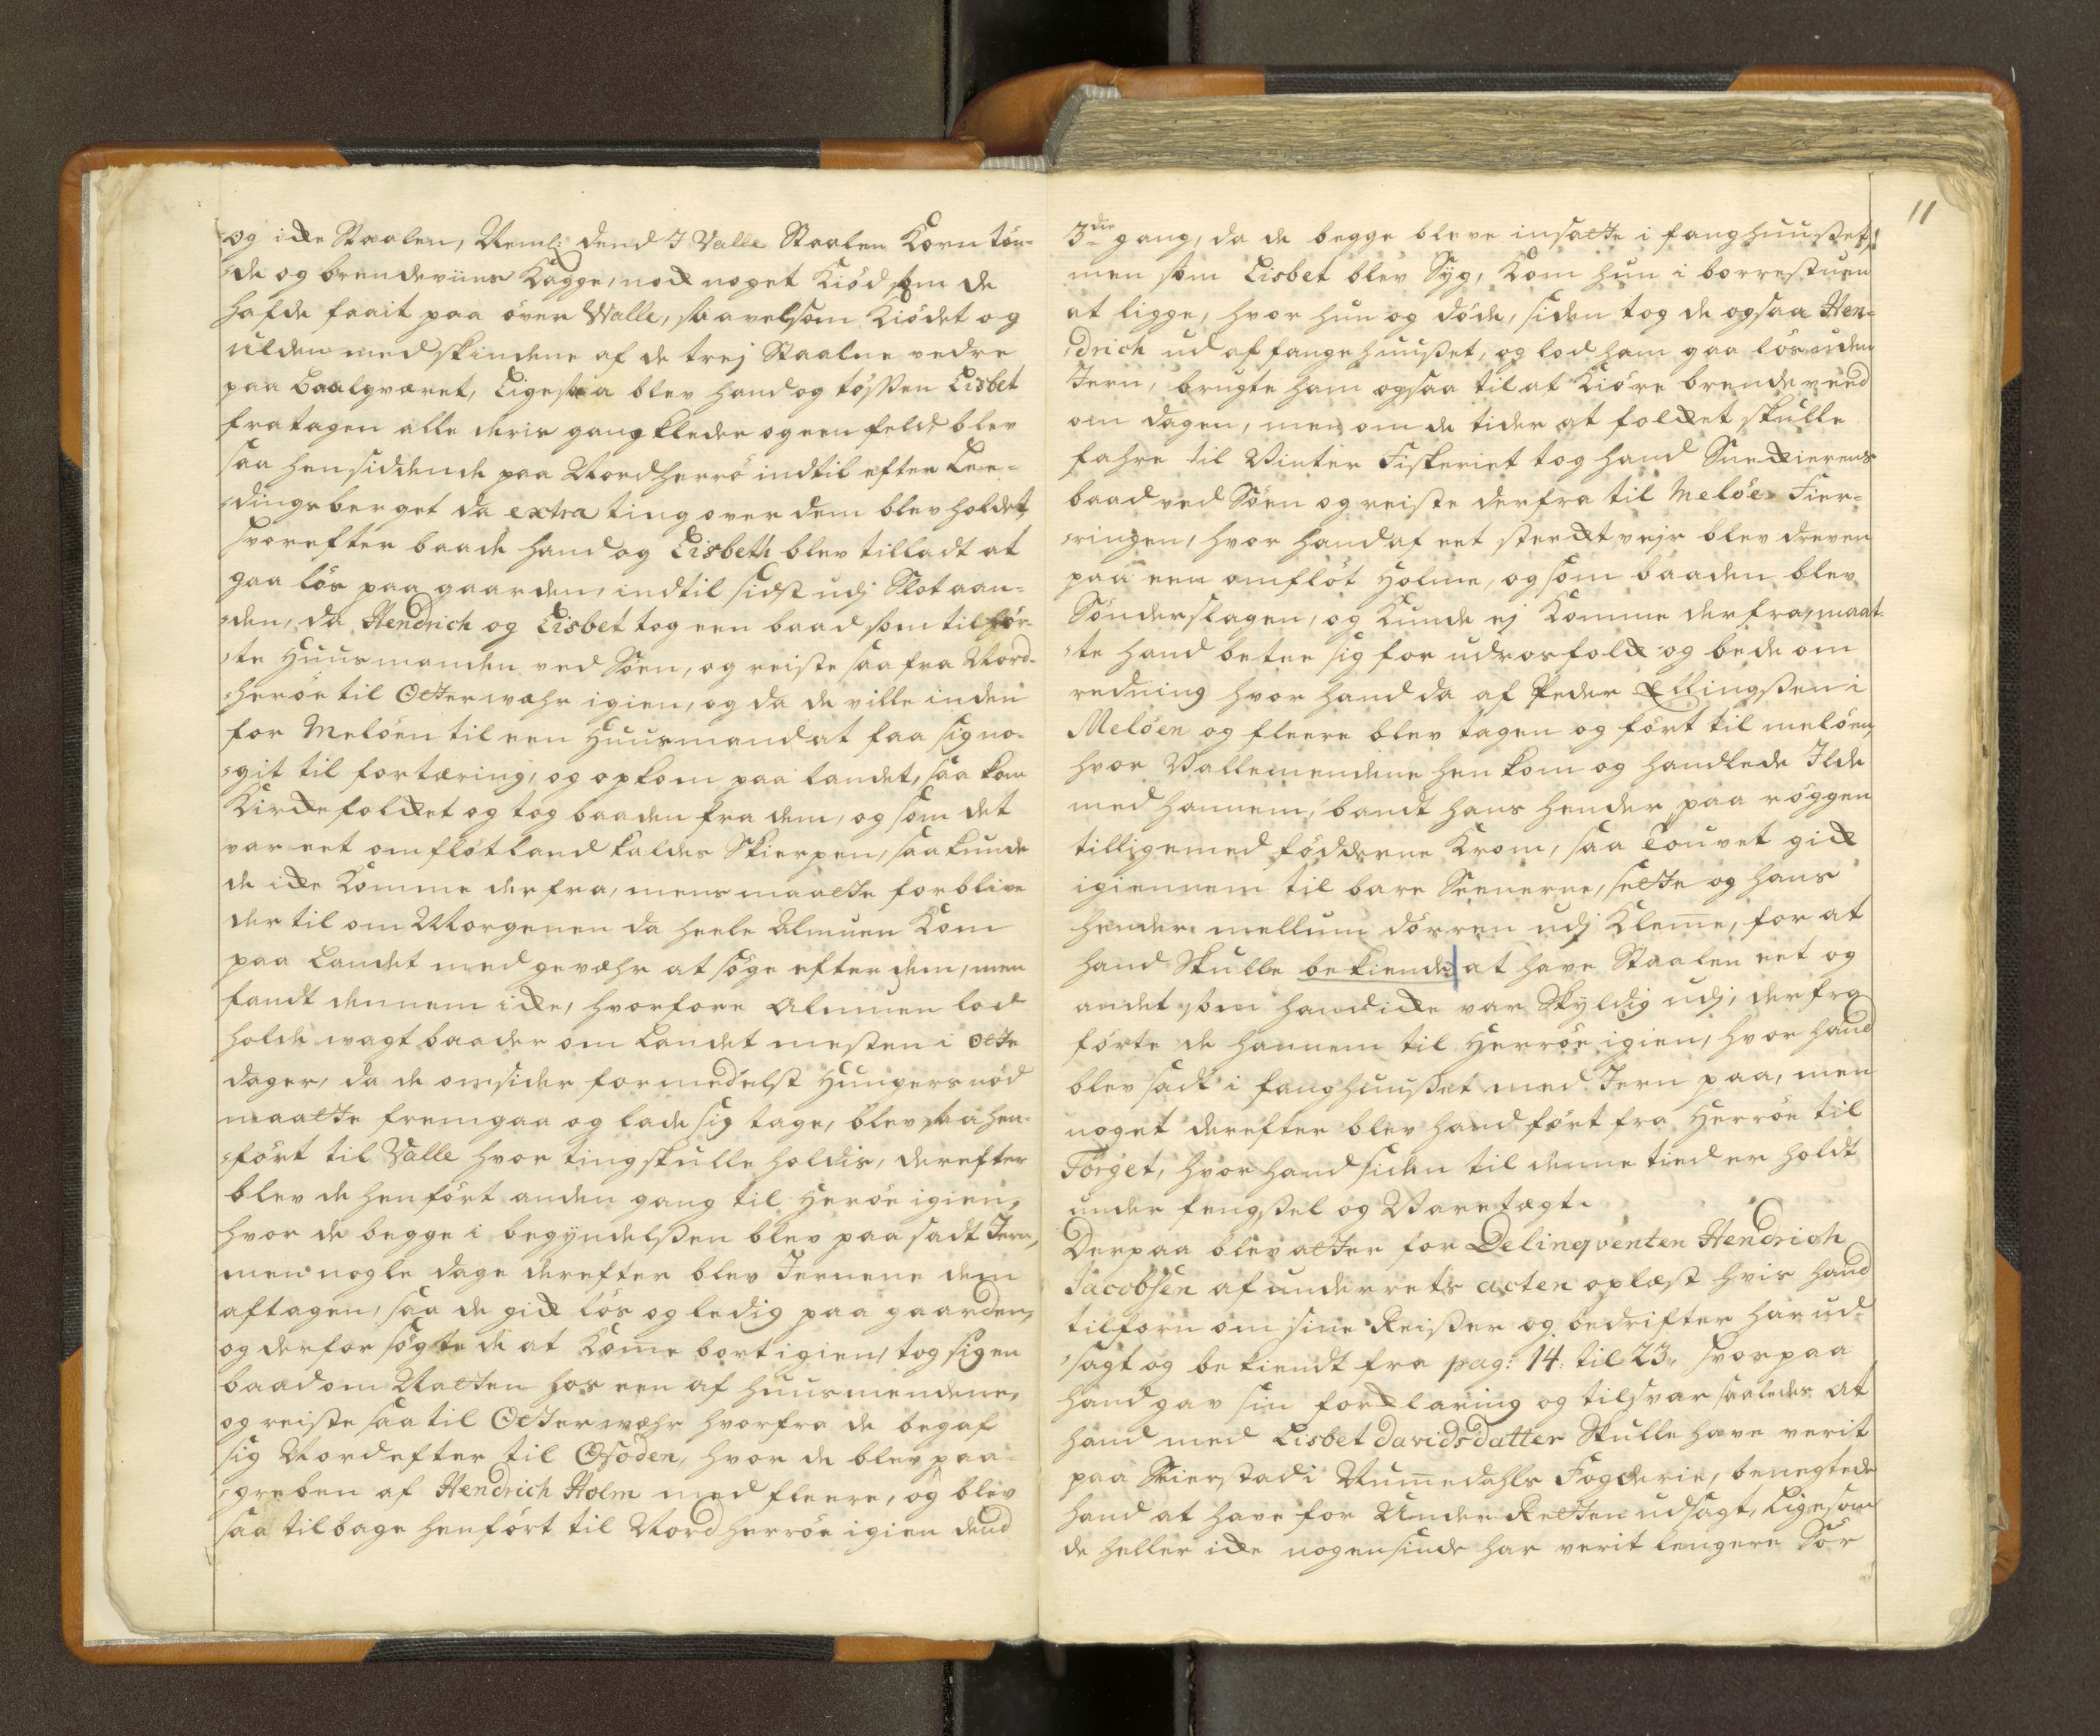 og icke Staalen, Neml: dend J Valle Staalen Korn tön-
de og brendeviins Kagge, nock noget Kiöd som de
hafde faait paa över Walle, saavelsom Kiödet og
ulden med skindene af de trej Staalne vedre
paa Baalgværet, Ligesaa blev hand og tössen Lisbet
fratagen alle deris gangkleder og een feld, blev
saa hensiddende paa Nordherrö indtil efter Lee-
dingsberget da extra ting over dem blev holdet,
hvorefter baade hand og Lisbeth blev tilladt at
gaa lös paa gaarden, indtil sidst udj Slot aan-
den, da Hendrich og Lisbet tog een baad som tilhör-
te Huusmanden ved Söen, og reiste saa fra Nord-
heröe til Otterwæhr igien, og da de ville inden
for Melöen til een Huusmand at faa sig no-
git til fortæring, og opkom paa landet, saa kom
Kirckefolcket og tog baaden fra dem, og som det
var eet omflöt land kaldes Skierpen, saa kunde
de icke komme derfra, mens maatte forblive
der til om Morgenen da heele Almuen Kom
paa Landet med gevæhr at söge efter dem, men
fandt dennem icke, hvorfore Almuen lod
holde wagt baader om Landet mesten i otte
dager, da de omsider formedelst Hungers nöd
maatte fremgaa og lade sig tage, blev saa hen-
fört til Valle hvor ting skulle holdis, derefter
blev de henfört anden gang til Heröe igien,
hvor de begge i begyndelßen blev paa sadt Jern,
men nogle dage derefter blev Jernene dem
aftagen, saa de gick lös og ledig paa gaarden,
og derfor sögte de at Komme bort igien, tog sig en
baad om Natten hos een af huusmendene,
og reiste saa til Otterwæhr hvorfra de begaf
sig Nordefter til Ofoden, hvor de blev paa-
greben af Hendrich Holm med fleere, og blev
saa tilbage henfört til Nordherröe igien dend
11
3die gang, da de begge bleve insatte i fanghuußet,
men som Lisbet blev Syg, Kom hun i borrestuen
at ligge, hvor hun og döde, siden tog de ogsaa Hen-
drich ud af fangehuußet, og lod ham gaa lös uden
Jern, brugte ham ogsaa til at Kiöre brendeveed
om dagen, men om de tider at folcket skulle
fahre til Vinter Fiskeriet tog hand Sneckierens
baad ved Söen og reiste derfra til Melöe Fier-
ringen, hvor hand af eet sterckt vejr blev dreven
paa een omflöt Holme, og som baaden blev
Sönderslagen, og Kunde ej Komme derfra, maat-
te hand betee sig for udrosfolck og bede om
redning hvor hand da af Peder Ellingßen i
Melöen og fleere blev tagen og fört til melöen,
hvor Vallemendene hen kom og handlede Ilde
med hannem, bandt hans hender paa röggen
tilligemed födderne Krom, saa Touvet gick
igiennem til bare Seenerne, sette og hans
hender mellum dörren udj Kleme, for at
hand Skulle bekiende at have Staalen eet og
andet som hand icke var Skyldig udj, derfra
förte de hannem til Herröe igien, hvor hand
blev sadt i fanghuußet med Jern paa, men
noget derefter blev hand fört fra Herröe til
Törget, hvor hand siden til denne tied er holdt
under fengßel og Varetægt.
Derpaa blev atter for Delinqventen Hendrich
Jacobsen af underrets acten oplæst hvis hand
tilforn om sine Reißer og bedrifter har ud-
sagt og bekiendt fra pag: 14. til 23, hvorpaa
hand gav sin forklaring og tilsvar saaledes at
hand med Lisbet Davidsdatter Skulle have verit
paa Seierstad i Numedahls Fogderie, benegtede
hand at have for Under Retten udsagt, ligesom
de heller icke nogensinde har verit lengere Sör